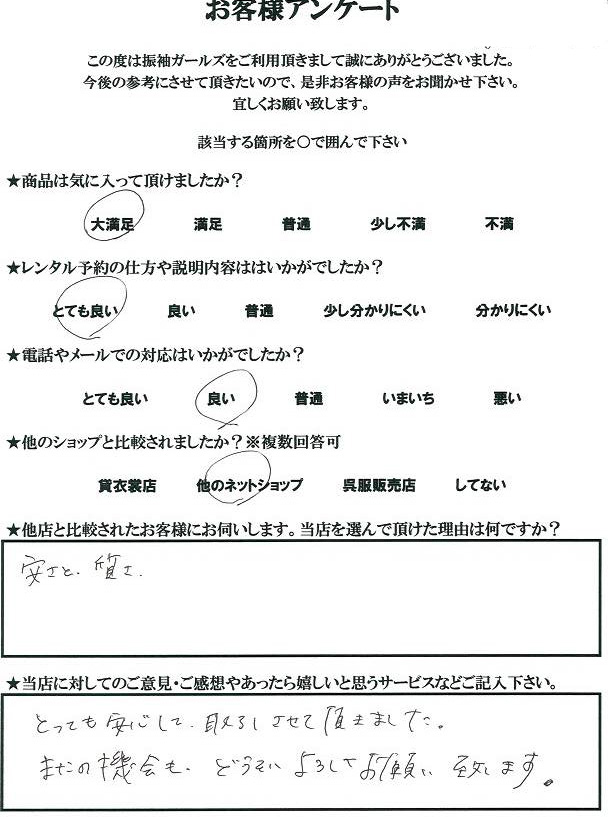 お客様アンケート
この度は振袖ガールズをご利用頂きまして誠にありがとうございました。
今後の参考にさせて頂きたいので、是非お客様の声をお聞かせ下さい。
宜しくお願い致します。
該当する箇所を○で囲んで下さい
★商品は気に入って頂けましたか？
大満足 満足 普通 少し不満 不満
★レンタル予約の仕方や説明内容ははいかがでしたか？
とても良い 良い 普通 少し分かりにくい 分かりにくい
★電話やメールでの対応はいかがでしたか？
とても良い 良い 普通 いまいち 悪い
★他のショップと比較されましたか？※複数回答可
貸衣裳店 他のネットショップ 呉服販売店 してない
★他店と比較されたお客様にお伺いします。当店を選んで頂けた理由は何ですか？
安さと、質さ.
★当店に対してのご意見・ご感想やあったら嬉しいと思うサービスなどご記入下さい。
とっても安心して、させて頂きました。
またの機会も、どうぞよろしくお願い致します。